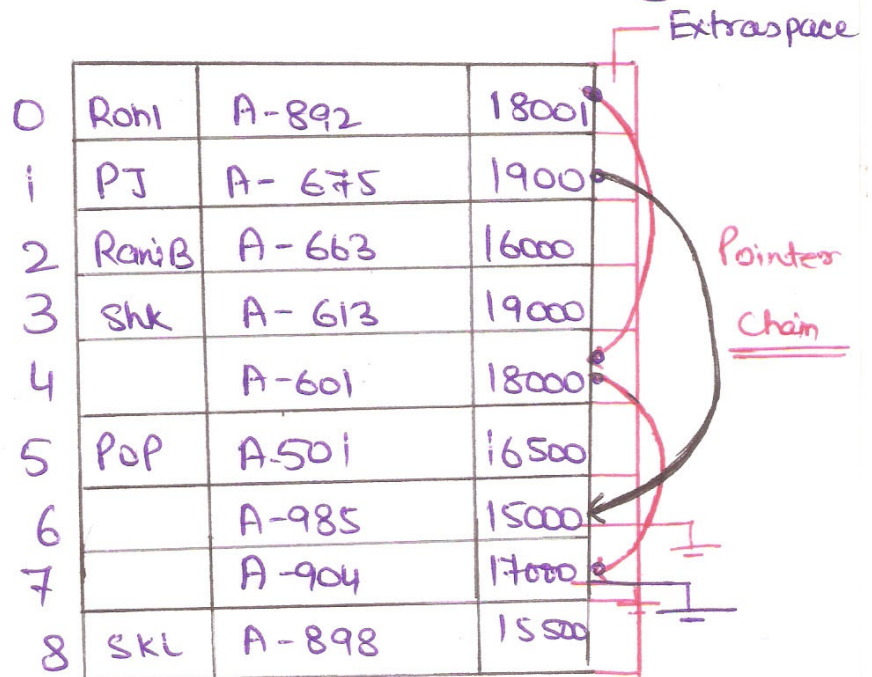 Extraspace
0 Rohl A-892 18001
1 PJ A-675 1900
2 RaniB A-663 16000
3 Shk A-613 19000
4 A-601 18000
5 POP A-501 16500
6 A-985 15000
7 A-904 17000
8 SKL A-898 15500
Pointer
Chain